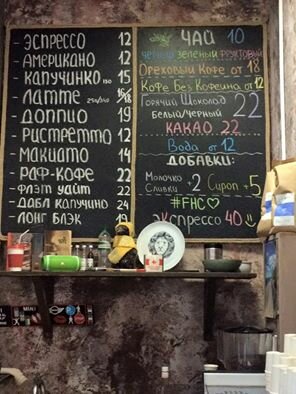 - ЭСПРЕССО 12
- АМЕРИКАНО 12
- КАПУЧИНКО по 15
- ЛАТТЕ 250/350 16/18
- ДОППИО 19
- РИСТРЕТТО 12
- МАКИАТО 14
- РАФ-КОФЕ 22
- ФЛЭТ УАЙТ 22
- ДАБЛ КАПУЧИНО 24
- ЛОНГ БЛЭК 19
ЧАЙ 10
черный зеленый фруктовый
Ореховый Кофе от 18
Кофе Без Кофеина от 12
Горячий Шоколад
БЕЛЫЙ/ЧЕРНЫЙ 22
КАКАО 22
Вода от 12
ДОБАВКИ:
Молочко
Сливки +2 Сироп +5
#FHC♡
Экспрессо 40